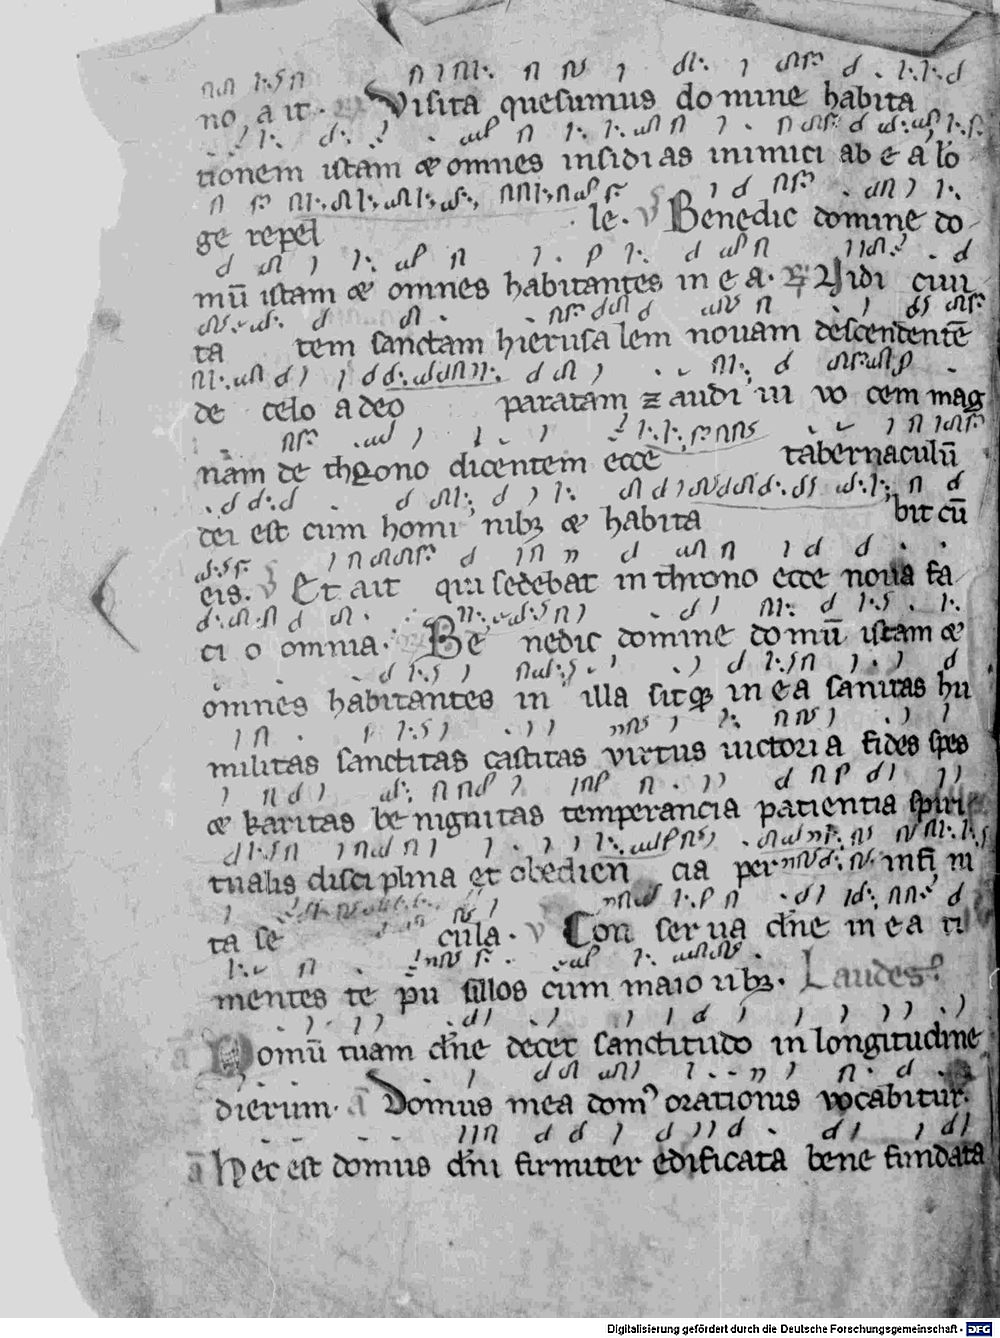 no ait. Visita quesumus domine habita
tionem istam & omnes insidias inimici ab ea lo
ge repel le. V Benedic domine do
mū istam & omnes habitantes in ea. R Vidi ciui
ta tem sanctam hierusalem nouam descendentē
de celo a deo paratam & audiui vocem mag
nam de throno dicentem ecce tabernaculū
dei est cum hominibꝫ & habita bit cū
eis. V Et ait qui sedebat in throno ecce noua fa
cio omnia. Be nedic domine domū istam &
omnes habitantes in illa sitqꝫ in ea sanitas hu
militas sanctitas castitas virtus uictoria fides spes
& karitas benignitas temperancia patientia spiri
tualis disciplina et obedien cia per infi ni
ta se cula. V Conserua dn̄e in ea ti
mentes te pusillos cum maioribꝫ. Laudes.
Domū tuam dn̄e decet sanctitudo in longitudine
dierum. a Domus mea domꝰ orationis vocabitur.
a Hec est domus dn̄i firmiter edificata bene fundata
Digitalisierung gefördert durch die Deutsche Forschungsgemeinschaft - DFG